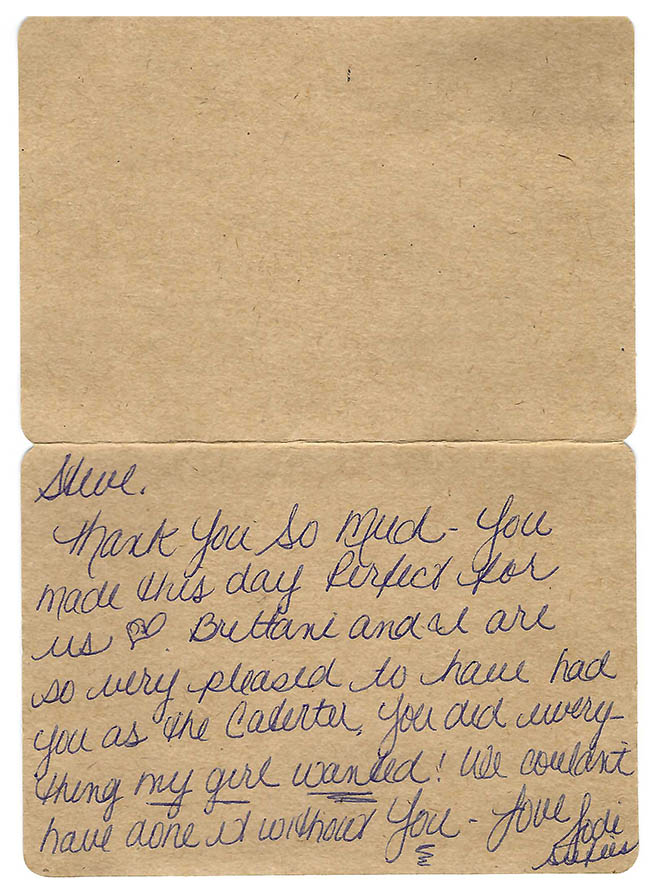 Steve.
Thank you so much - you
made this day perfect for
us ♡. Brittani and I are
so very pleased to have had
you as the Caterter, you did every-
thing my girl wanted! We couldn't
have done it without you - Love Jodi